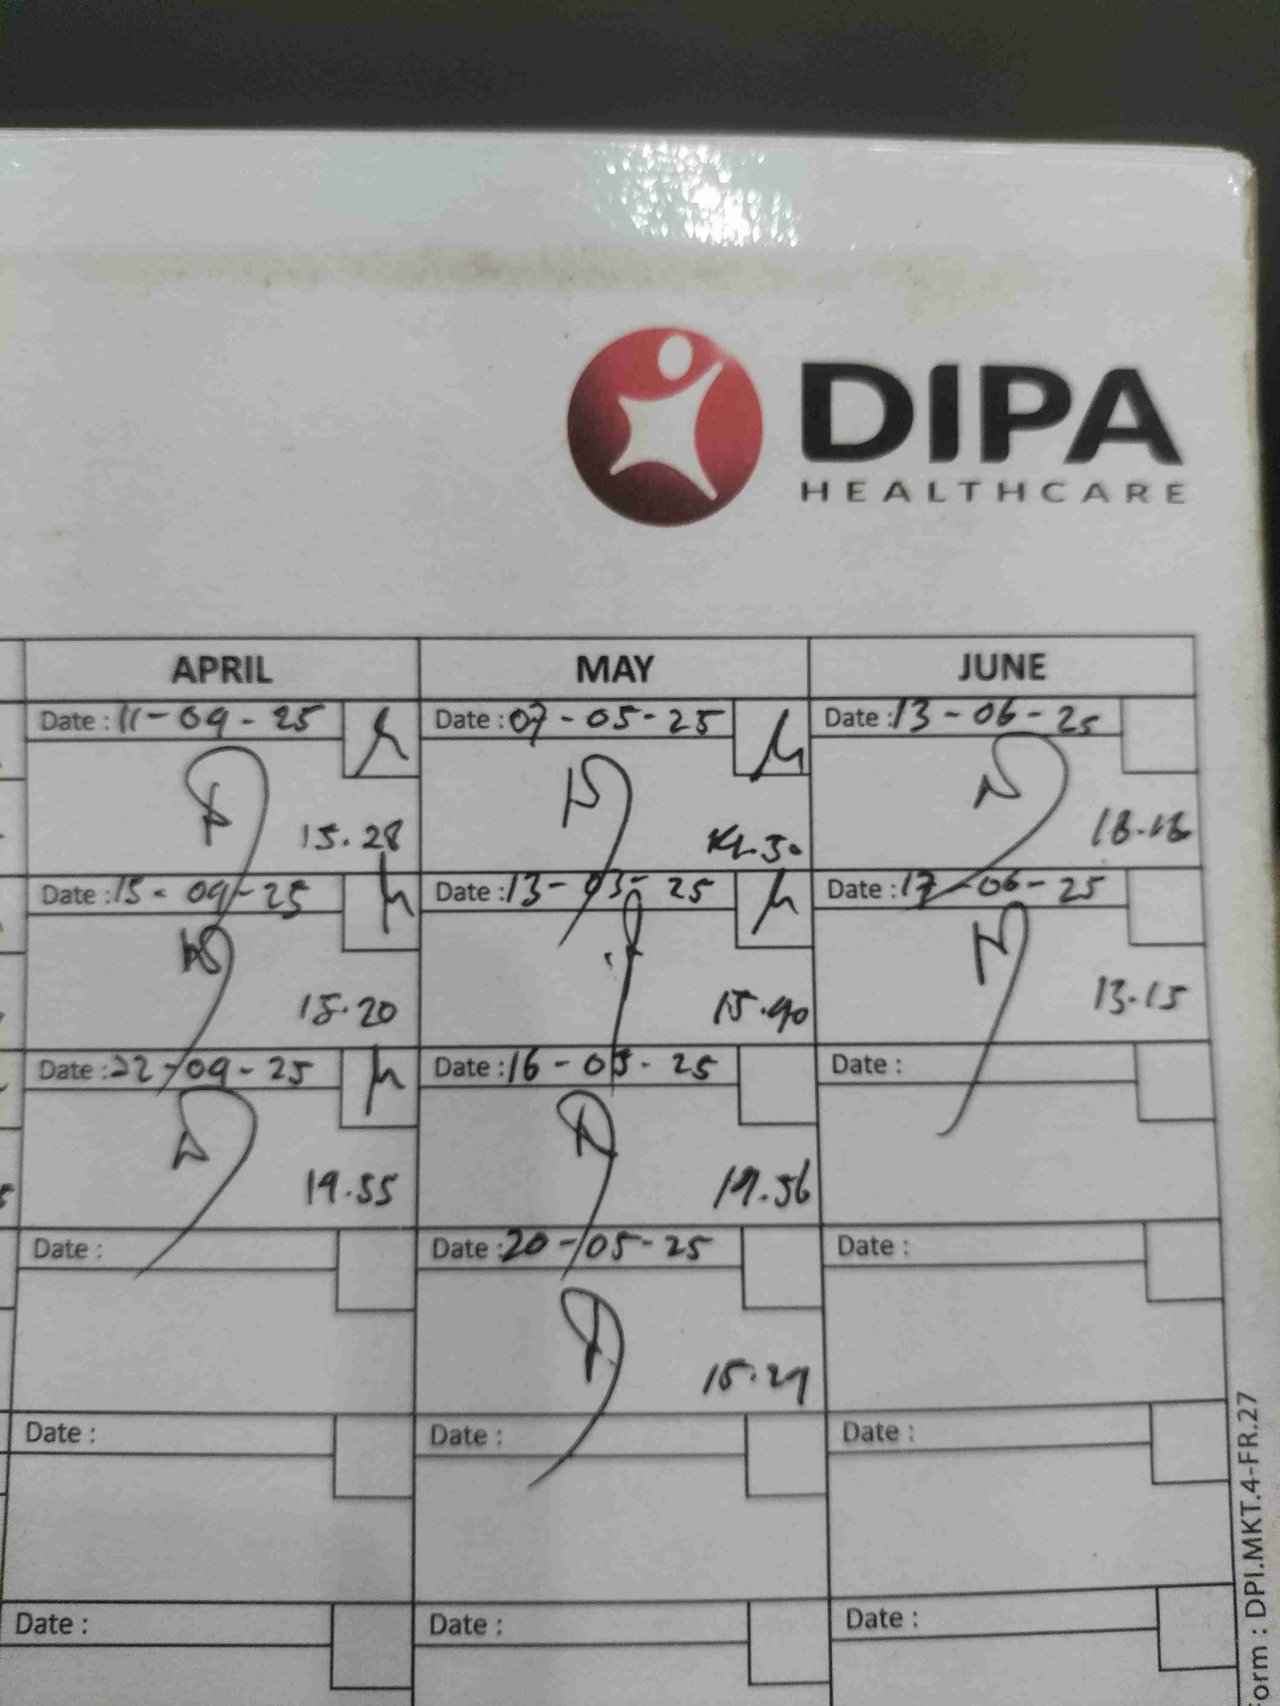 DIPA
HEALTHCARE
APRIL MAY JUNE
Date : 11-04-25 Date : 07-05-25 Date : 13-06-25
15.28 14.30 18.18
Date : 15-04-25 Date : 13-05-25 Date : 17-06-25
15.20 15.40 13.15
Date : 22-04-25 Date : 16-05-25 Date :
19.55 19.56
Date : Date : 20-05-25 Date :
15.29
Date : Date : Date :
Date : Date : Date :
Form : DPI.MKT.4-FR.27